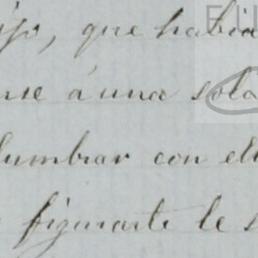 ijo, que habia
me á una sola
lumbrar con el
figurarte le s